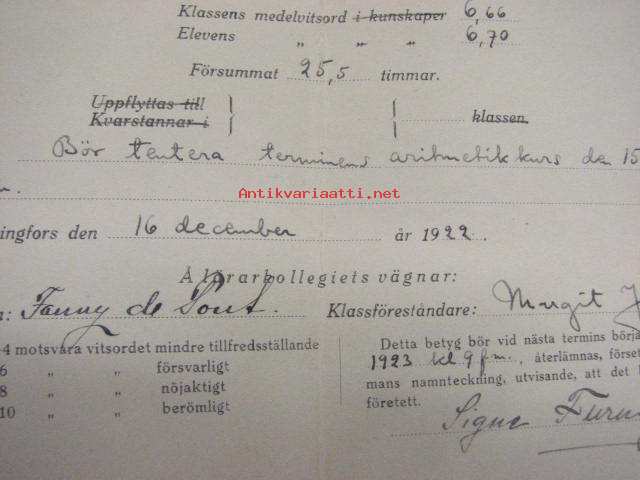 Klassens medelvitsord i kunskaper 6,66
Elevens „ „ „ 6,70
Försummat 25,5 timmar.
Uppflyttas till
Kvarstannar i } { klassen.
Bör tentera terminens aritmetikkurs den 15
Antikvariaatti.net
ingfors den 16 december år 1922.
Å lärarkollegiets vägnar:
Fanny de Pont. Klassföreståndare: Margit
4 motsvara vitsordet mindre tillfredsställande
6 „ „ försvarligt
8 „ „ nöjaktigt
10 „ „ berömligt
Detta betyg bör vid nästa termins börja
1923 kl 9 f.m., återlämnas, förset
mans namnteckning, utvisande, att det
företett.
Signe